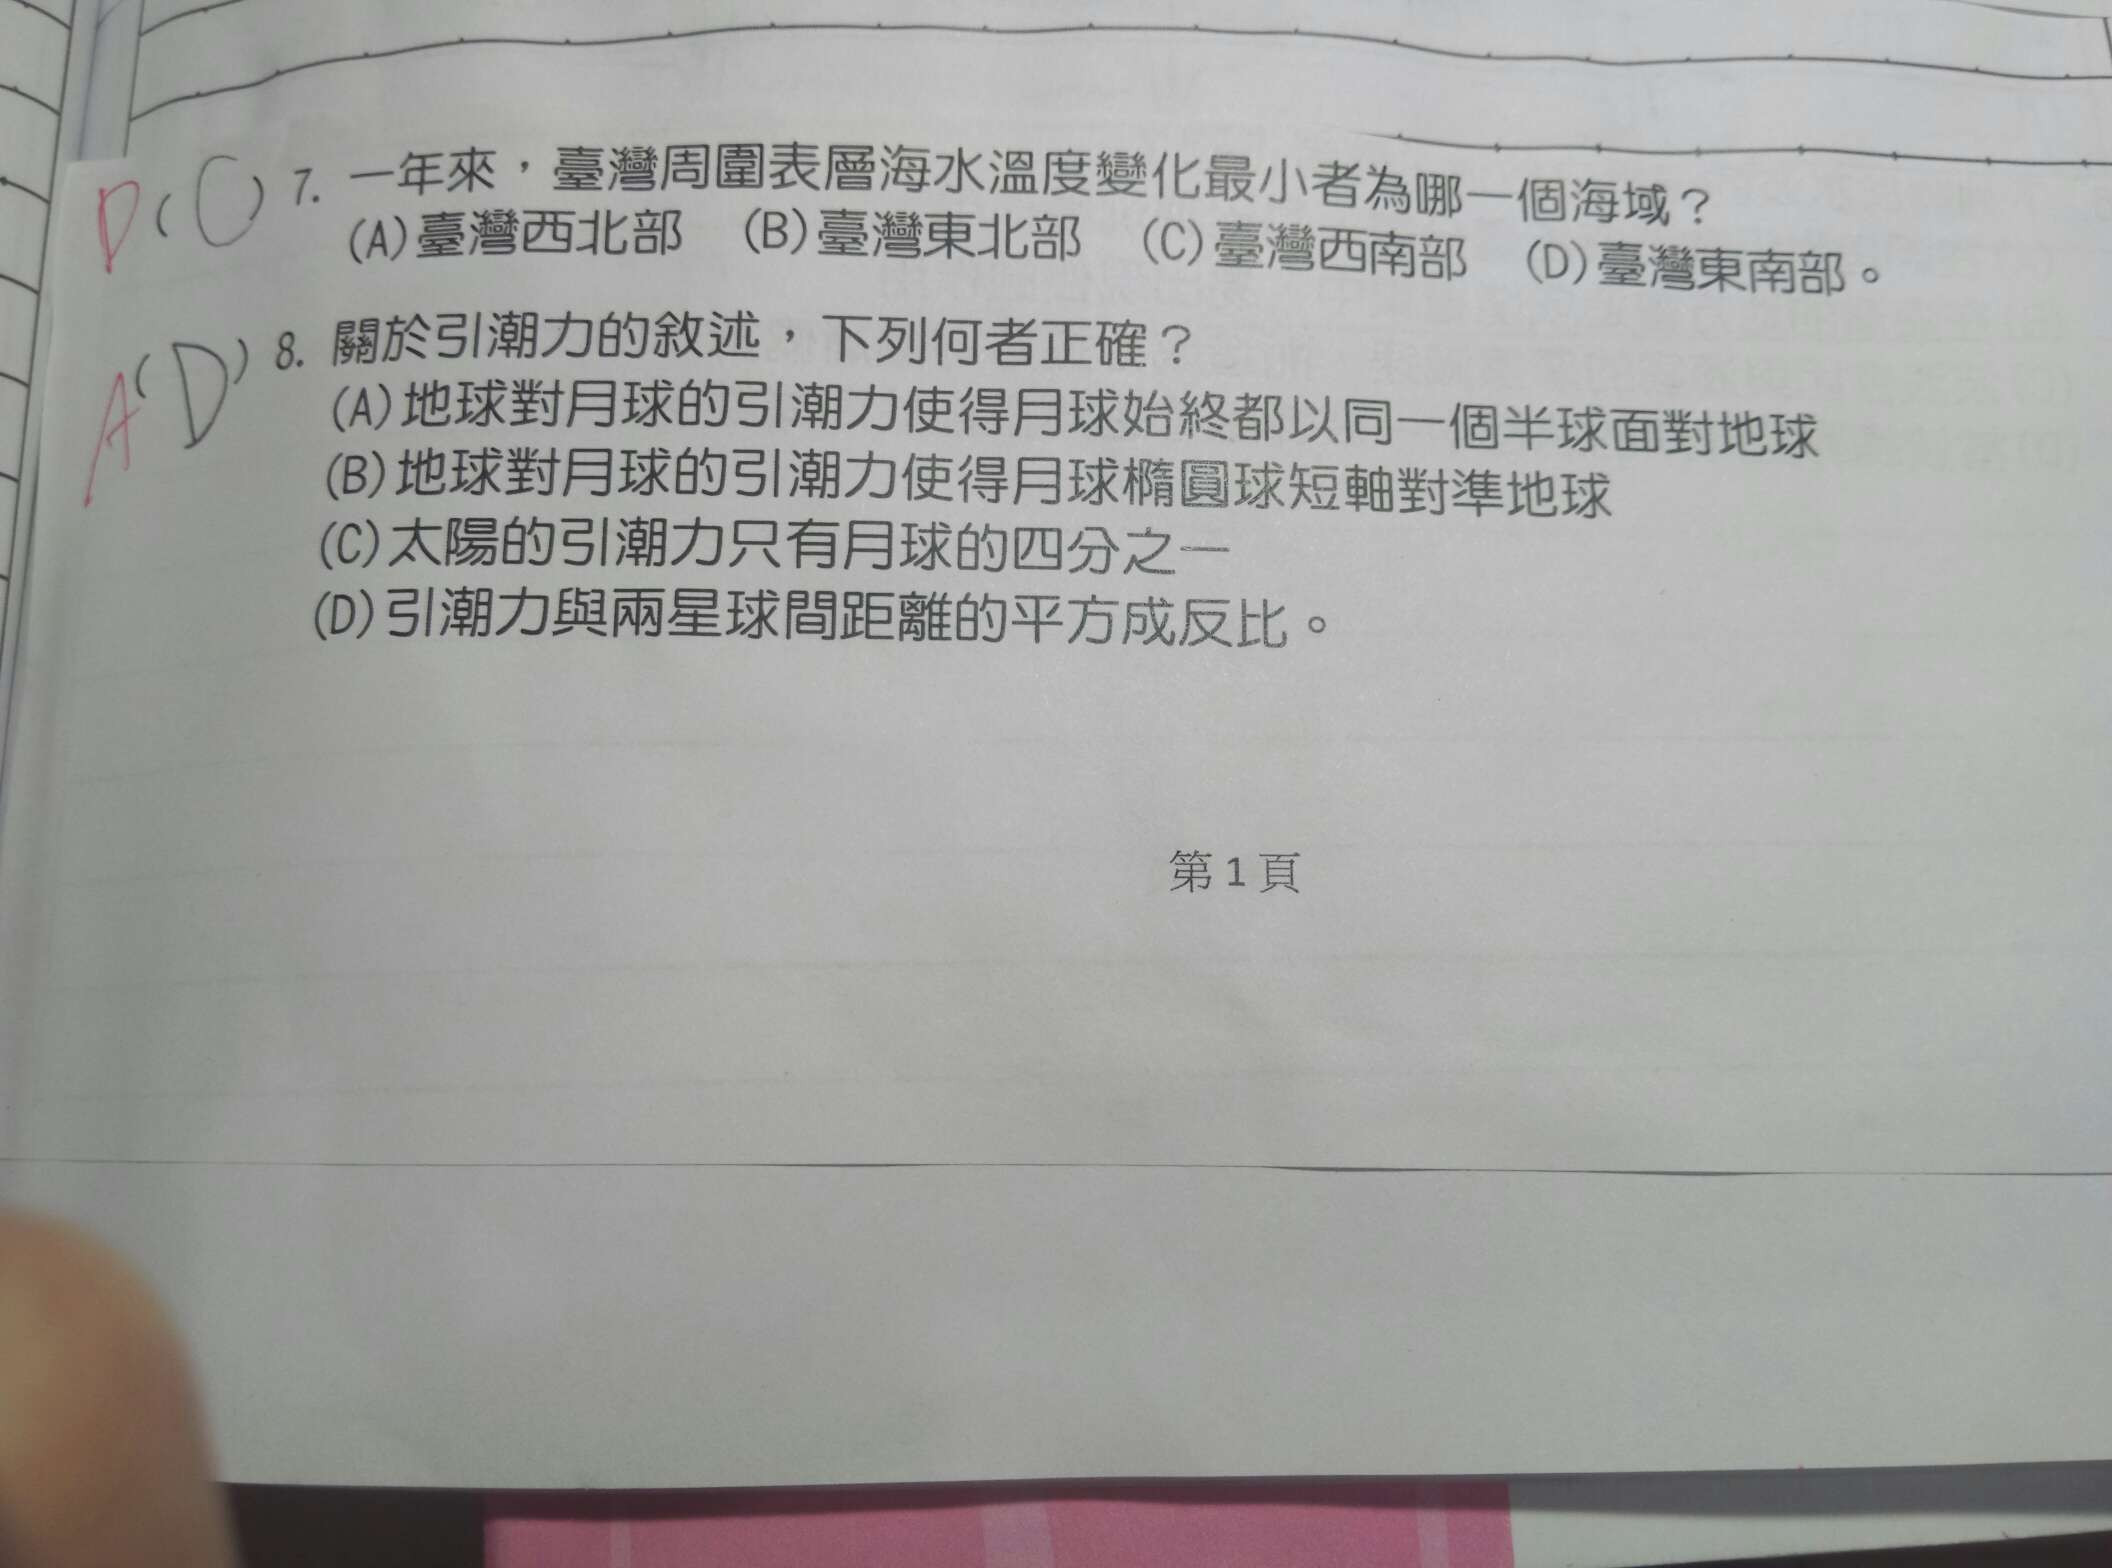 D(C)7. 一年來，臺灣周圍表層海水溫度變化最小者為哪一個海域？
(A)臺灣西北部 (B)臺灣東北部 (C)臺灣西南部 (D)臺灣東南部。
A(D)8. 關於引潮力的敘述，下列何者正確？
(A)地球對月球的引潮力使得月球始終都以同一個半球面對地球
(B)地球對月球的引潮力使得月球橢圓球短軸對準地球
(C)太陽的引潮力只有月球的四分之一
(D)引潮力與兩星球間距離的平方成反比。
第1頁